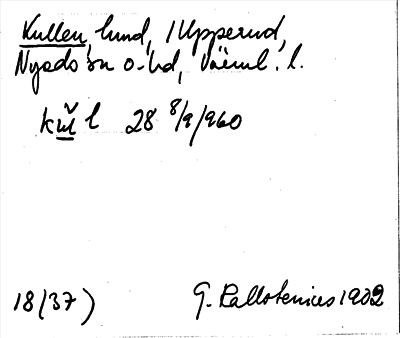 Kullen, lund, /Upperud,
Nysäters o-hd, Värml. l.
kul l 28 8/9/960
18(37) G. Kallstenius 1902